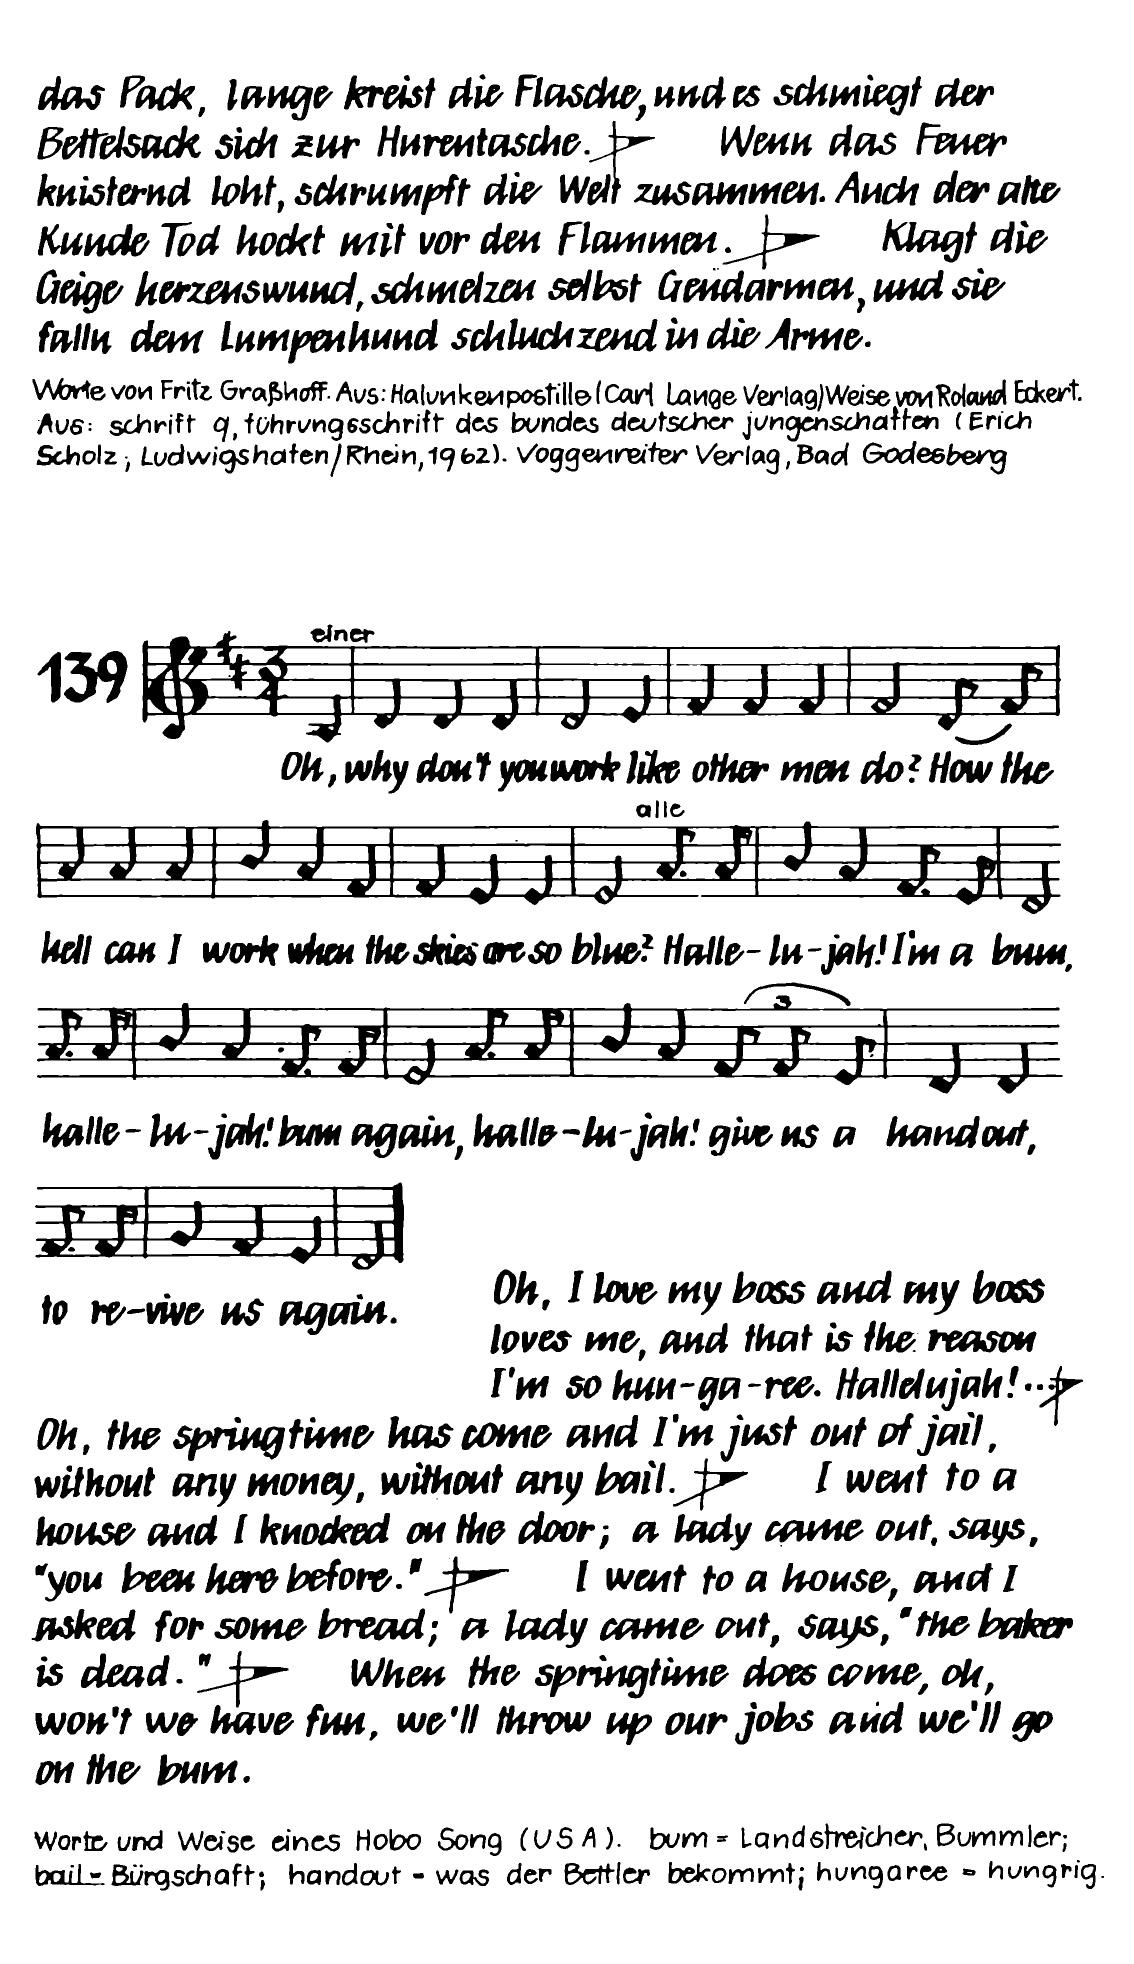 das Pack, lange kreist die Flasche, und es schmiegt der
Bettelsack sich zur Hurentasche. Wenn das Feuer
knisternd loht, schrumpft die Welt zusammen. Auch der alte
Kunde Tod hockt mit vor den Flammen. Klagt die
Geige herzenswund, schmelzen selbst Gendarmen, und sie
falln dem Lumpenhund schluchzend in die Arme.
Worte von Fritz Graßhoff. Aus: Halunkenpostille (Carl Lange Verlag) Weise von Roland Eckert.
Aus: schrift 9, führungsschrift des bundes deutscher jungenschaften (Erich
Scholz; Ludwigshafen/Rhein, 1962). Voggenreiter Verlag, Bad Godesberg
einer
139 3/4
Oh, why don't you work like other men do? How the
alle
hell can I work when the skies are so blue? Halle-lu-jah! I'm a bum,
3
halle-lu-jah! bum again, halle-lu-jah! give us a handout,
to re-vive us again.
Oh, I love my boss and my boss
loves me, and that is the reason
I'm so hun-ga-ree. Hallelujah!...
Oh, the springtime has come and I'm just out of jail,
without any money, without any bail. I went to a
house and I knocked on the door; a lady came out, says,
"you been here before." I went to a house, and I
asked for some bread; a lady came out, says, "the baker
is dead." When the springtime does come, oh,
won't we have fun, we'll throw up our jobs and we'll go
on the bum.
Worte und Weise eines Hobo Song (USA). bum = Landstreicher, Bummler;
bail = Bürgschaft; handout = was der Bettler bekommt; hungaree = hungrig.